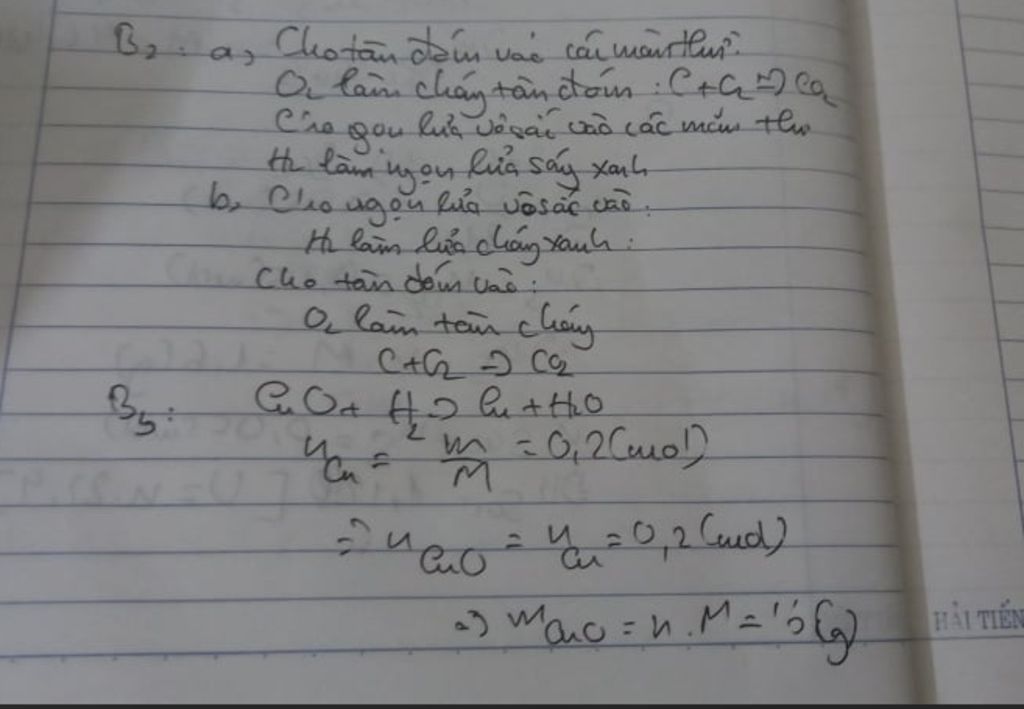 B2: a, Cho tàn đóm vào các mẫu thử:
O2 làm cháy tàn đóm: C+O2 => CO2
Cho ngọn lửa vô sắc vào các mẫu thử
H2 làm ngọn lửa xanh
b, Cho ngọn lửa vô sắc vào:
H2 làm lửa cháy xanh:
Cho tàn đóm vào:
O2 làm tàn cháy
C+O2 => CO2
B3: CuO + H2 => Cu + H2O
nCu = m/M = 0,2 (mol)
=> nCuO = nCu = 0,2 (mol)
=> mCuO = n.M = (g)
HẢI TIẾN